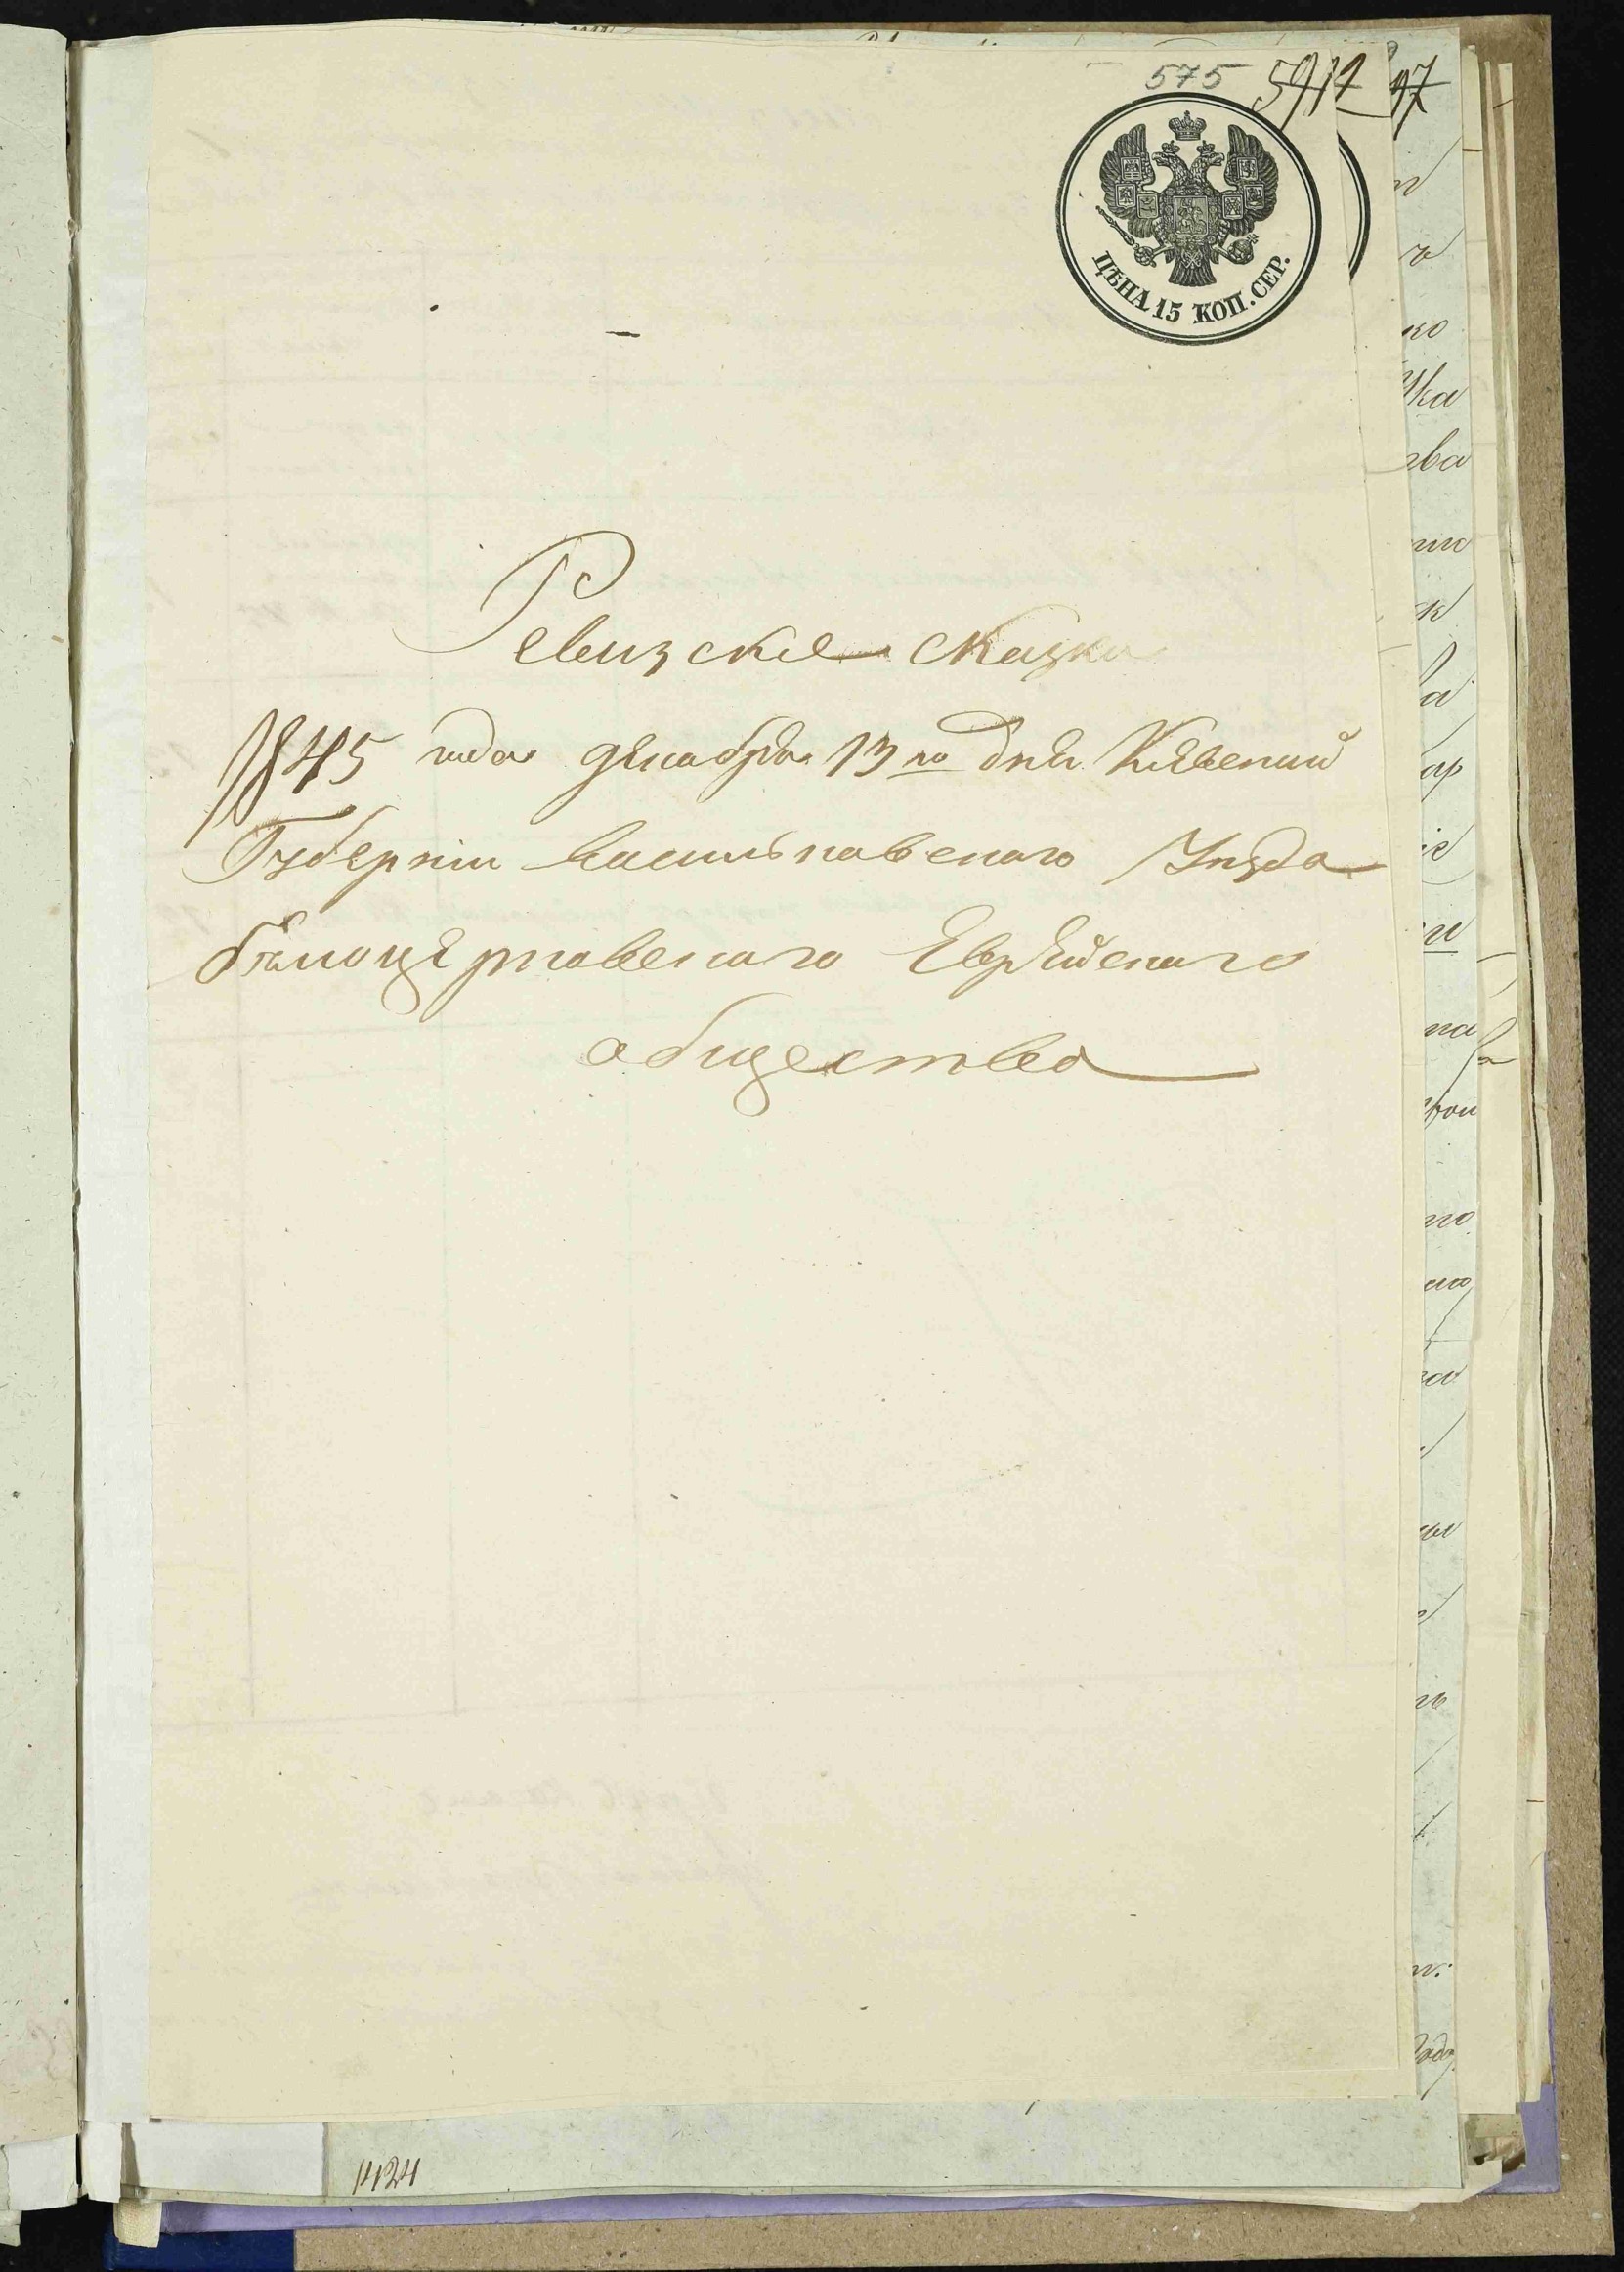 575 591
97
ЦѢНА 15 КОП. СЕР.
Ревизские сказки
1845 года декабря 13го дня Киевский
Губерніи василькавскаго Уѣзда
бѣлоцерковскаго Еврейскаго
общества
1424